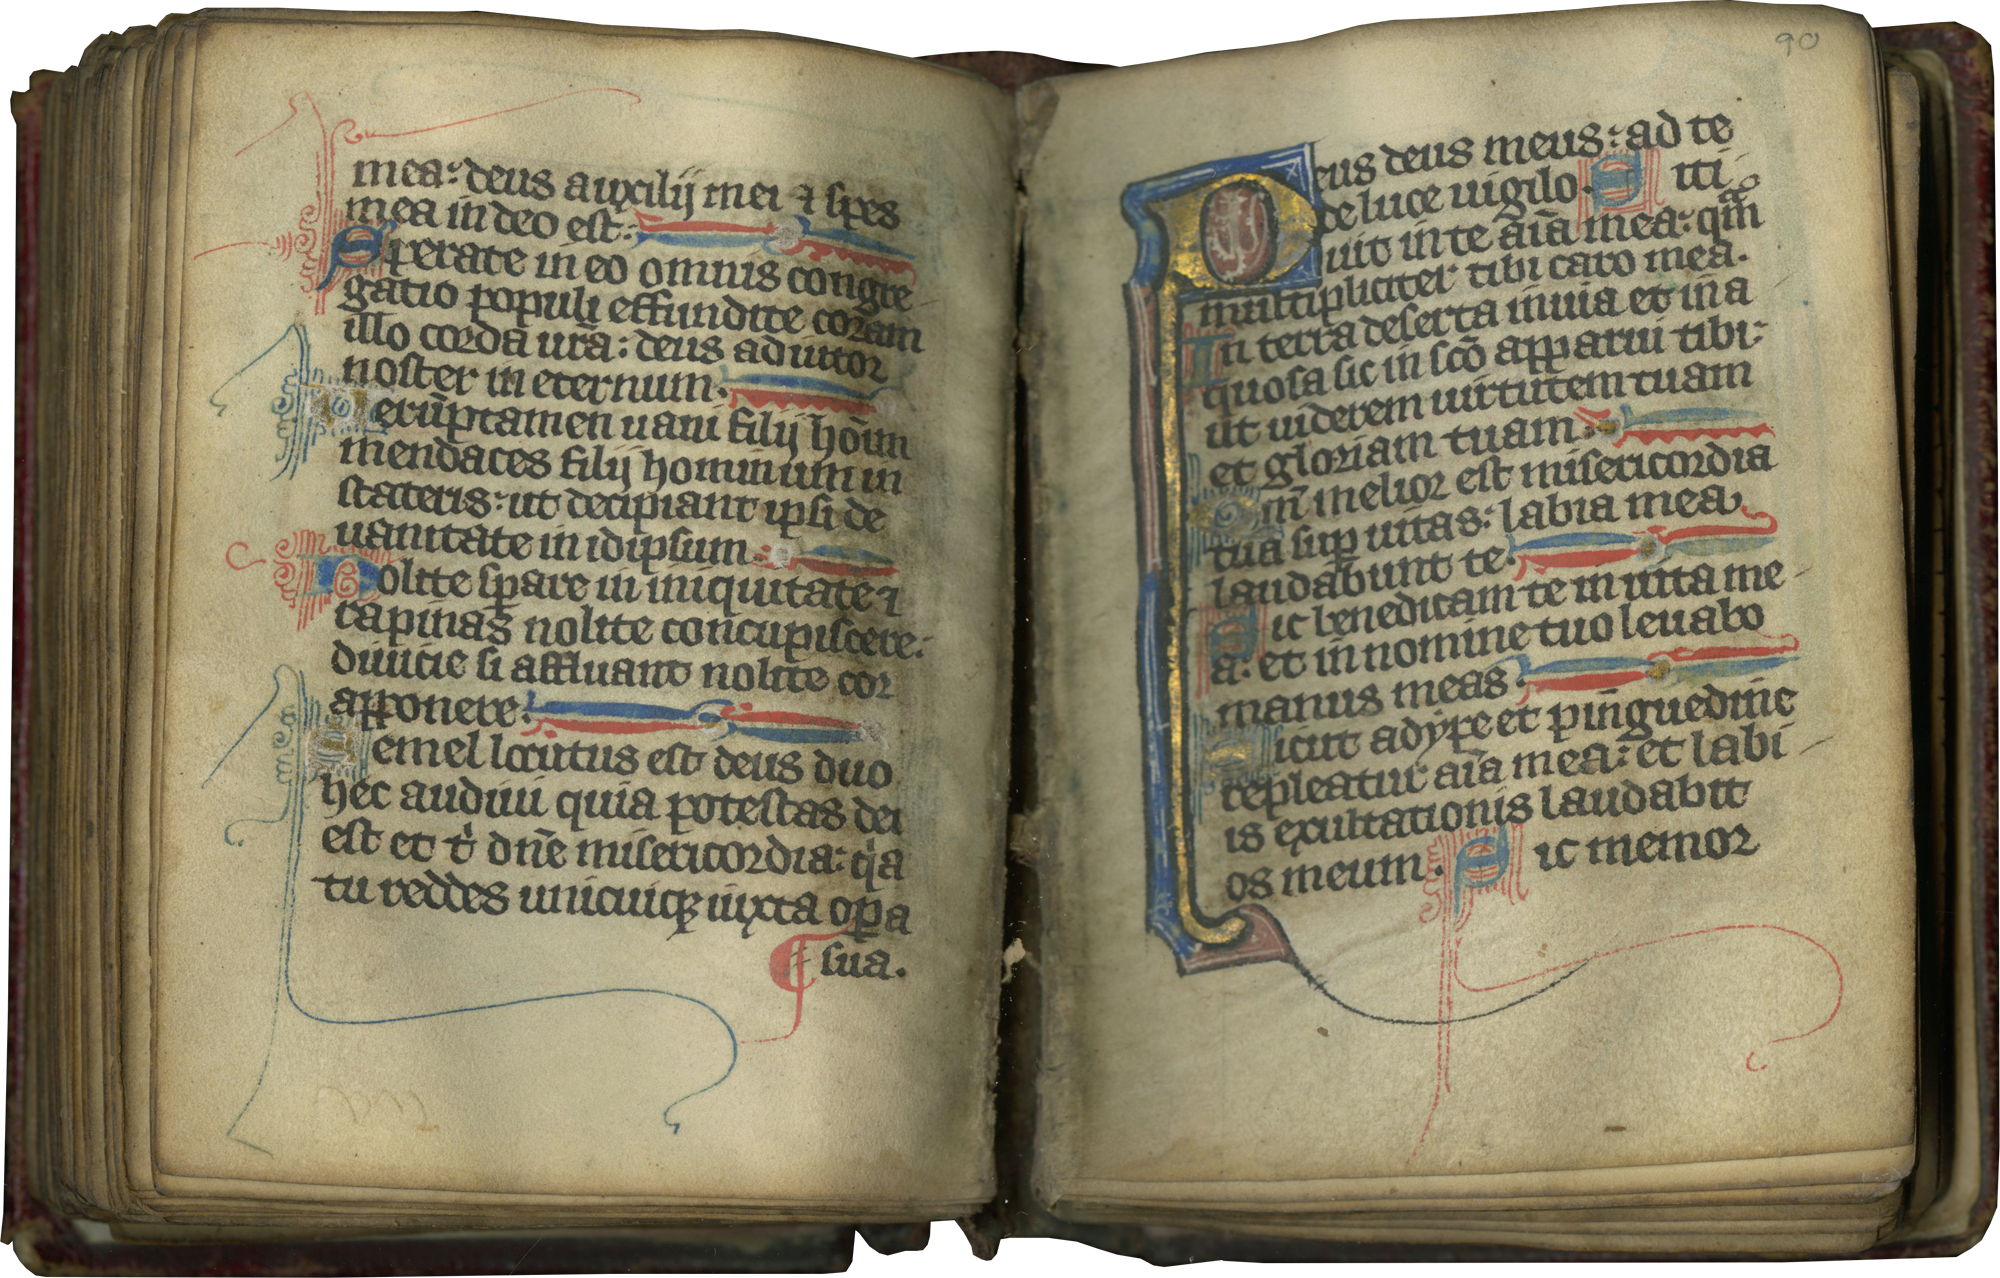 mea: deus auxilij mei ⁊ spes
mea in deo est:
Sperate in eo omnis congre
gatio populi effundite coram
illo corda ur̄a: deus adiutor
noster in eternum.
Uerūptamen uani filij hoīm
mendaces filij hominum in
stateris: ut decipiant ipsi de
uanitate in idipsum.
Nolite sꝑare in iniquitate ⁊
rapinas nolite concupiscere:
diuicie si affluant nolite cor
apponere:
Semel locutus est deus duo
hec audiui quia potestas dei
est et tⁱ dn̄e misericordia: qⁱa
tu reddes unicuiqꝫ iuxta oꝑa
sua.
90
Deus deus meus: ad te
de luce uigilo. Siti
uit in te aīa mea: qm̄
multipliciter tibi caro mea.
In terra deserta inuia et in a
quosa sic in sc̄o apparui tibi:
ut uiderem uirtutem tuam
et gloriam tuam:
Qm̄ melior est misericordia
tua suꝑ uitas: labia mea
laudabunt te.
Sic benedicam te in uita me
a: et in nomine tuo leuabo
manus meas:
Sicut adype et pinguedine
repleatur aīa mea: et labi
is exultationis laudabit
os meum. Sic memor